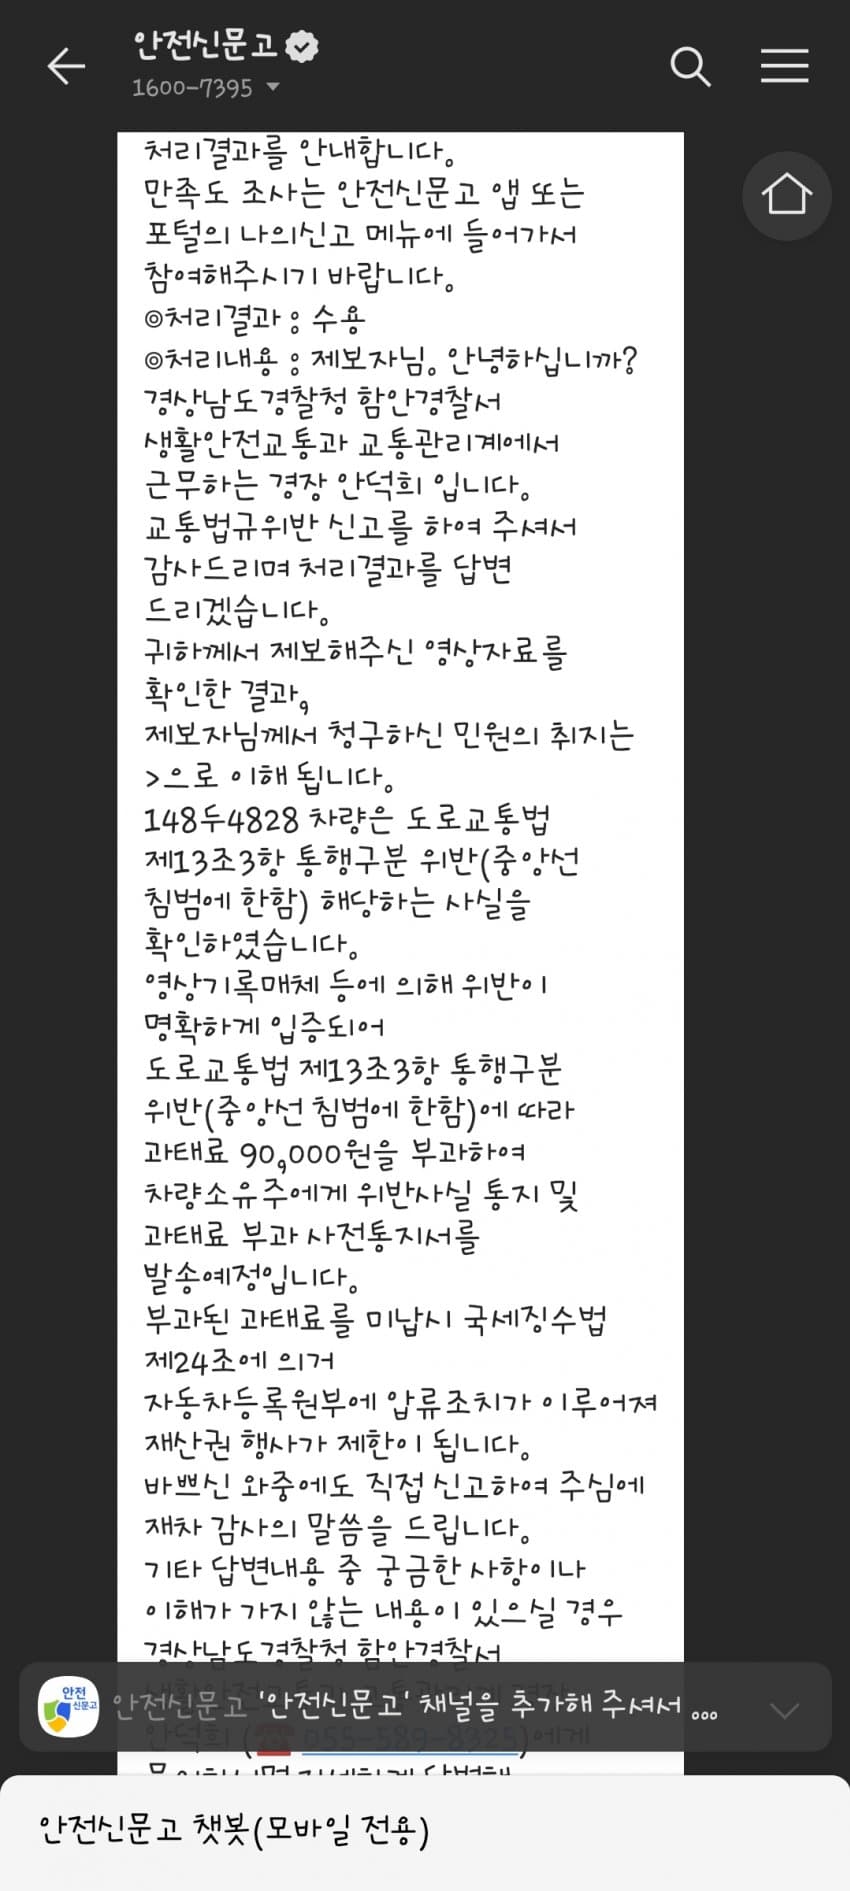 안전신문고
1600-7395
처리결과를 안내합니다.
만족도 조사는 안전신문고 앱 또는
포털의 나의신고 메뉴에 들어가서
참여해주시기 바랍니다.
◎처리결과 : 수용
◎처리내용 : 제보자님. 안녕하십니까?
경상남도경찰청 함안경찰서
생활안전교통과 교통관리계에서
근무하는 경장 안덕희 입니다.
교통법규위반 신고를 하여 주셔서
감사드리며 처리결과를 답변
드리겠습니다.
귀하께서 제보해주신 영상자료를
확인한 결과,
제보자님께서 청구하신 민원의 취지는
>으로 이해 됩니다.
148두4828 차량은 도로교통법
제13조3항 통행구분 위반(중앙선
침범에 한함) 해당하는 사실을
확인하였습니다.
영상기록매체 등에 의해 위반이
명확하게 입증되어
도로교통법 제13조3항 통행구분
위반(중앙선 침범에 한함)에 따라
과태료 90,000원을 부과하여
차량소유주에게 위반사실 통지 및
과태료 부과 사전통지서를
발송예정입니다.
부과된 과태료를 미납시 국세징수법
제24조에 의거
자동차등록원부에 압류조치가 이루어져
재산권 행사가 제한이 됩니다.
바쁘신 와중에도 직접 신고하여 주심에
재차 감사의 말씀을 드립니다.
기타 답변내용 중 궁금한 사항이나
이해가 가지 않는 내용이 있으실 경우
경상남도경찰청 함안경찰서
안전신문고
안전신문고 '안전신문고' 채널을 추가해 주셔서 ...
안덕희 (☎ 055-589-8325)에게
안전신문고 챗봇(모바일 전용)